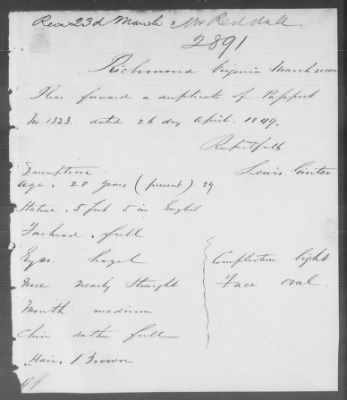 Rec 23d March Mr Reddall
2891
Richmond Virginia March
Please forward a duplicate of Passport
No 1323 dated 26 day April. 1849.
Respectfully
Lewis Ginter
Description
Age. 28 years (present) 29
Stature. 5 feet 5 in English
Forhead. full
Eyes. hazel
Nose nearly straight
Mouth medium
Chin rather full
Hair, Brown
Complection light
Face oval.